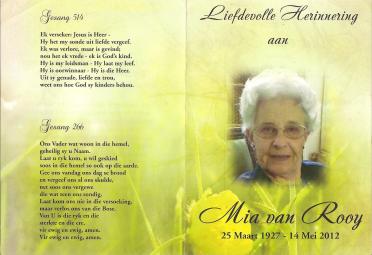 Gesang 514
Ek verseker: Jesus is Heer -
Hy het my sonde uit liefde vergeef.
Ek was verlore, maar is gevind;
nou het ek vrede - ek is God's kind.
Hy is my leidsman - Hy laat my leef.
Hy is oorwinnaar - Hy is die Heer.
Uit sy genade, liefde en trou,
weet ons hoe God sy kinders behou.
Gesang 266
Ons Vader wat woon in die hemel,
geheilig sy u Naam.
Laat u ryk kom, u wil geskied
soos in die hemel so ook op die aarde.
Gee ons vandag ons dag se brood
en vergeef ons al ons skulde,
net soos ons vergewe
die wat teen ons sondig.
Laat kom ons nie in die versoeking,
maar verlos ons van die Bose.
Van U is die ryk en die
sterkte en die eer.
vir ewig en ewig, amen.
Vir ewig en ewig, amen.
Liefdevolle Herinnering
aan
Mia van Rooy
25 Maart 1927 - 14 Mei 2012